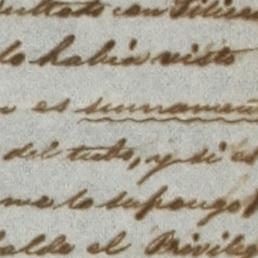 ultado con Filica
lo habia visto
es sumamen
del tubo, y si es
me lo supongo
el Privileg